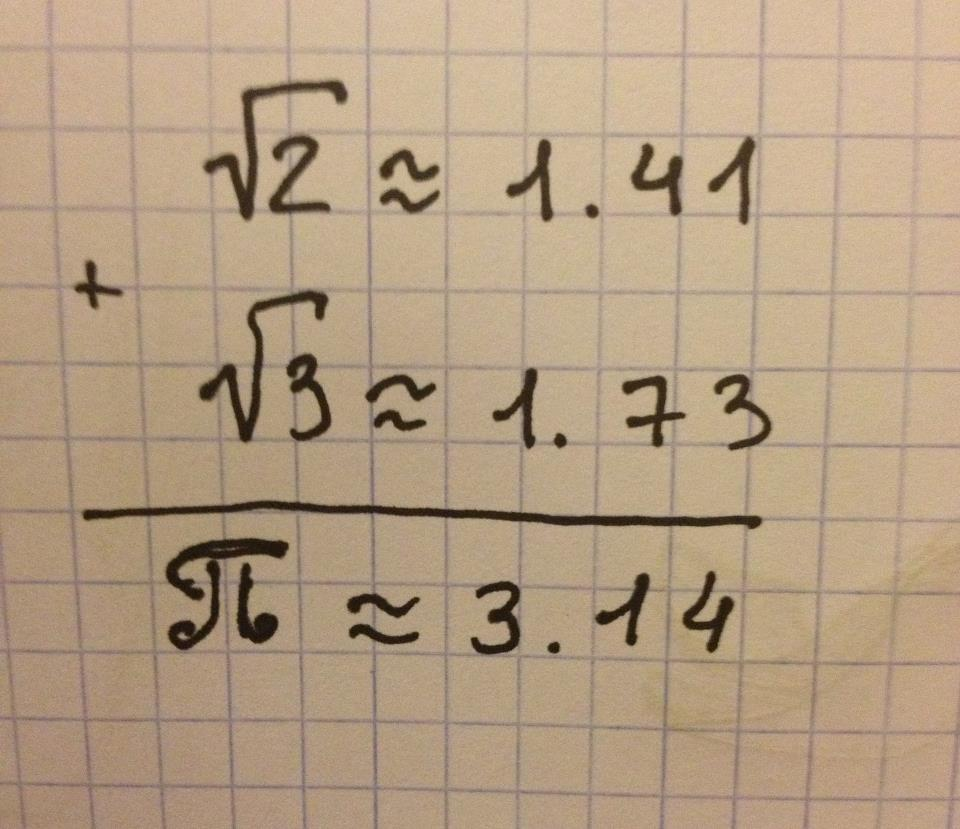 √2 ≈ 1.41
+
√3 ≈ 1.73
π ≈ 3.14